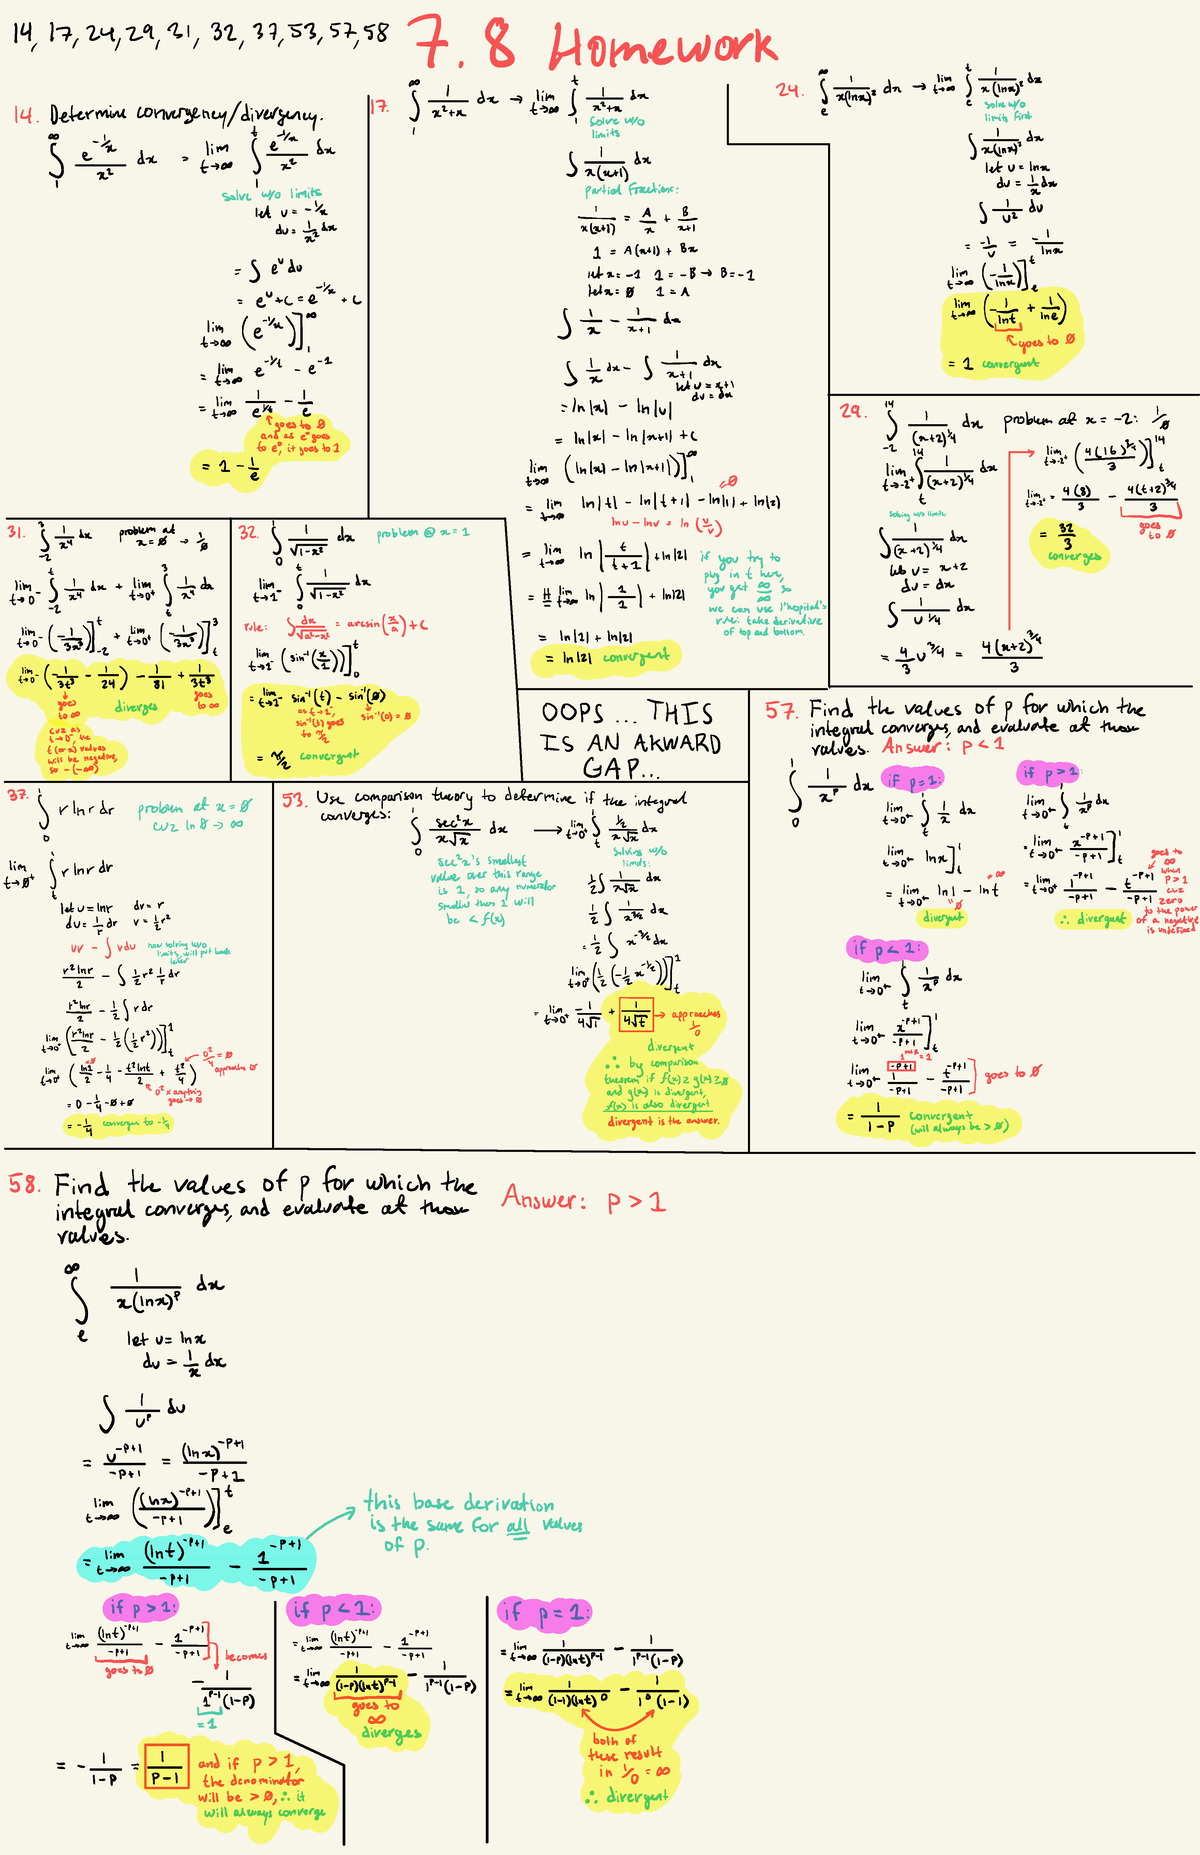 14, 17, 24, 29, 31, 32, 37, 53, 57, 58
7.8 Homework
14. Determine convergency/divergency.
∫₁^∞ e^(-1/x)/x² dx = lim t→∞ ∫₁^t e^(-1/x)/x² dx
solve w/o limits
let u = -1/x
du = 1/x² dx
= ∫ e^u du
= e^u + C = e^(-1/x) + C
lim t→∞ (e^(-1/x))]₁^∞
= lim t→∞ e^(-1/t) - e^(-1)
= lim t→∞ 1/e^(1/t) - 1/e
↑ goes to 0
and as e^0 goes
to e^0, it goes to 1
= 1 - 1/e
17. ∫₁^∞ 1/(x²+x) dx → lim t→∞ ∫₁^t 1/(x²+x) dx
solve w/o
limits
∫ 1/(x(x+1)) dx
partial fractions:
1/(x(x+1)) = A/x + B/(x+1)
1 = A(x+1) + Bx
let x = -1 1 = -B → B = -1
let x = 0 1 = A
∫ 1/x - 1/(x+1) dx
∫ 1/x dx - ∫ 1/(x+1) dx
let u = x+1
du = dx
= ln|x| - ln|u|
= ln|x| - ln|x+1| + C
lim t→∞ (ln|x| - ln|x+1|)]₁^∞
= lim t→∞ ln|t| - ln|t+1| - ln|1| + ln|2|
=0
lnu - lnv = ln(u/v)
= lim t→∞ ln|t/(t+1)| + ln|2|
=H lim t→∞ ln|1/1| + ln|2|
if you try to
plug in t here,
you get ∞/∞ so
we can use l'hopital's
rule: take derivative
of top and bottom.
= ln|1| + ln|2|
= ln|2| convergent
24. ∫ₑ^∞ 1/(x(lnx)²) dx → lim t→∞ ∫ₑ^t 1/(x(lnx)²) dx
solve w/o
limits first
∫ 1/(x(lnx)²) dx
let u = lnx
du = 1/x dx
∫ 1/u² du
= -1/u = -1/lnx
lim t→∞ (-1/lnx)]ₑ^t
lim t→∞ (-1/lnt + 1/lne)
↖ goes to 0
= 1 convergent
29. ∫₋₂^14 1/(x+2)^(1/4) dx problem at x = -2: 1/0
lim t→-2⁺ ∫ₜ^14 1/(x+2)^(1/4) dx
solving w/o limits
∫ 1/(x+2)^(1/4) dx
let u = x+2
du = dx
∫ 1/u^(1/4) dx
= 4/3 u^(3/4) = 4(x+2)^(3/4)/3
lim t→-2⁺ (4(16)^(3/4)/3)]ₜ^14
lim t→-2⁺ = 4(8)/3 - 4(t+2)^(3/4)/3
goes
to 0
= 32/3
converges
31. ∫₋₂^3 1/x⁴ dx problem at
x = 0 → 1/0
lim t→0⁻ ∫₋₂^t 1/x⁴ dx + lim t→0⁺ ∫ₜ^3 1/x⁴ dx
lim t→0⁻ (-1/3x³)]₋₂^t + lim t→0⁺ (-1/3x³)]ₜ^3
lim t→0⁻ (-1/3t³ - 1/24) - 1/81 + 1/3t³
goes
to ∞
diverges
goes
to ∞
cuz as
t→0⁻, the
t (or x) values
will be negative,
so -(-∞)
32. ∫₀^1 1/√(1-x²) dx problem @ x = 1
lim t→1⁻ ∫₀^t 1/√(1-x²) dx
rule: ∫ dx/√(a²-x²) = arcsin(x/a) + C
lim t→1⁻ (sin⁻¹(x/1))]₀^t
= lim t→1⁻ sin⁻¹(t) - sin⁻¹(0)
as t→1,
sin⁻¹(t) goes
to π/2
sin⁻¹(0) = 0
= π/2 convergent
OOPS... THIS
IS AN AKWARD
GAP...
37. ∫₀^1 r lnr dr problem at x = 0
cuz ln 0 → ∞
lim t→0⁺ ∫ₜ^1 r lnr dr
let u = lnr dv = r
du = 1/r dr v = 1/2 r²
uv - ∫ vdu
now solving w/o
limits, will put back
later
r²lnr/2 - ∫ 1/2 r² 1/r dr
r²lnr/2 - 1/2 ∫ r dr
lim t→0⁺ (r²lnr/2 - 1/2(1/2 r²))]ₜ^1
lim t→0⁺ (ln1/2 - 1/4 - t²lnt/2 + t²/4)
=0
0²/4 = 0
approaches 0
↖ 0² x anything
goes → 0
= 0 - 1/4 - 0 + 0
= -1/4 converges to -1/4
53. Use comparison theory to determine if the integral
converges:
∫₀^1 sec²x/(x√x) dx → lim t→0⁺ ∫ₜ^1 1/2/(x√x) dx
sec²x's smallest
value over this range
is 1, so any numerator
smaller than 1 will
be < f(x)
solving w/o
limits:
1/2 ∫ 1/(x√x) dx
1/2 ∫ 1/x^(3/2) dx
= 1/2 ∫ x^(-3/2) dx
lim t→0⁺ (1/2 (-1/2 x^(-1/2)))]ₜ^1
= lim t→0⁺ -1/(4√1) + 1/(4√t) → approaches
1/0
divergent
∴ by comparison
theorem if f(x) ≥ g(x) ≥ 0
and g(x) is divergent,
f(x) is also divergent
divergent is the answer.
57. Find the values of p for which the
integral converges, and evaluate at those
values. Answer: p < 1
∫₀^1 1/x^p dx
if p = 1:
lim t→0⁺ ∫ₜ^1 1/x dx
lim t→0⁺ lnx]ₜ^1
= lim t→0⁺ ln1 - lnt
=0
divergent
if p > 1:
lim t→0⁺ ∫ₜ^1 1/x^p dx
= lim t→0⁺ x^(-p+1)/(-p+1)]ₜ^1
= lim t→0⁺ 1^(-p+1)/(-p+1) - t^(-p+1)/(-p+1)
goes to
∞
when
p > 1
cuz
zero
to the power
of a negative
is undefined
∴ divergent
if p < 1:
lim t→0⁺ ∫ₜ^1 1/x^p dx
lim t→0⁺ x^(-p+1)/(-p+1)]ₜ^1
lim t→0⁺ 1^(-p+1)/(-p+1) - t^(-p+1)/(-p+1)] goes to 0
= 1/(1-p) convergent
(will always be > 0)
58. Find the values of p for which the
integral converges, and evaluate at those
values.
Answer: p > 1
∫ₑ^∞ 1/(x(lnx)^p) dx
let u = lnx
du = 1/x dx
∫ 1/u^p du
= u^(-p+1)/(-p+1) = (lnx)^(-p+1)/(-p+1)
lim t→∞ ((lnx)^(-p+1)/(-p+1))]ₑ^t
= lim t→∞ (lnt)^(-p+1)/(-p+1) - 1^(-p+1)/(-p+1)
this base derivation
is the same for all values
of p.
if p > 1:
lim t→∞ (lnt)^(-p+1)/(-p+1) - 1^(-p+1)/(-p+1)
goes to 0
becomes
- 1/(1^(p-1)(1-p))
= 1
= - 1/(1-p) = 1/(p-1)
and if p > 1,
the denominator
will be > 0, ∴ it
will always converge
if p < 1:
= lim t→∞ (lnt)^(-p+1)/(-p+1) - 1^(-p+1)/(-p+1)
= lim t→∞ 1/((1-p)(lnt)^(p-1)) - 1/(1^(p-1)(1-p))
goes to
∞
diverges
if p = 1:
= lim t→∞ 1/((1-p)(lnt)^(p-1)) - 1/(1^(p-1)(1-p))
= lim t→∞ 1/((1-1)(lnt)^0) - 1/(1^0(1-1))
both of
these result
in 1/0 = ∞
∴ divergent